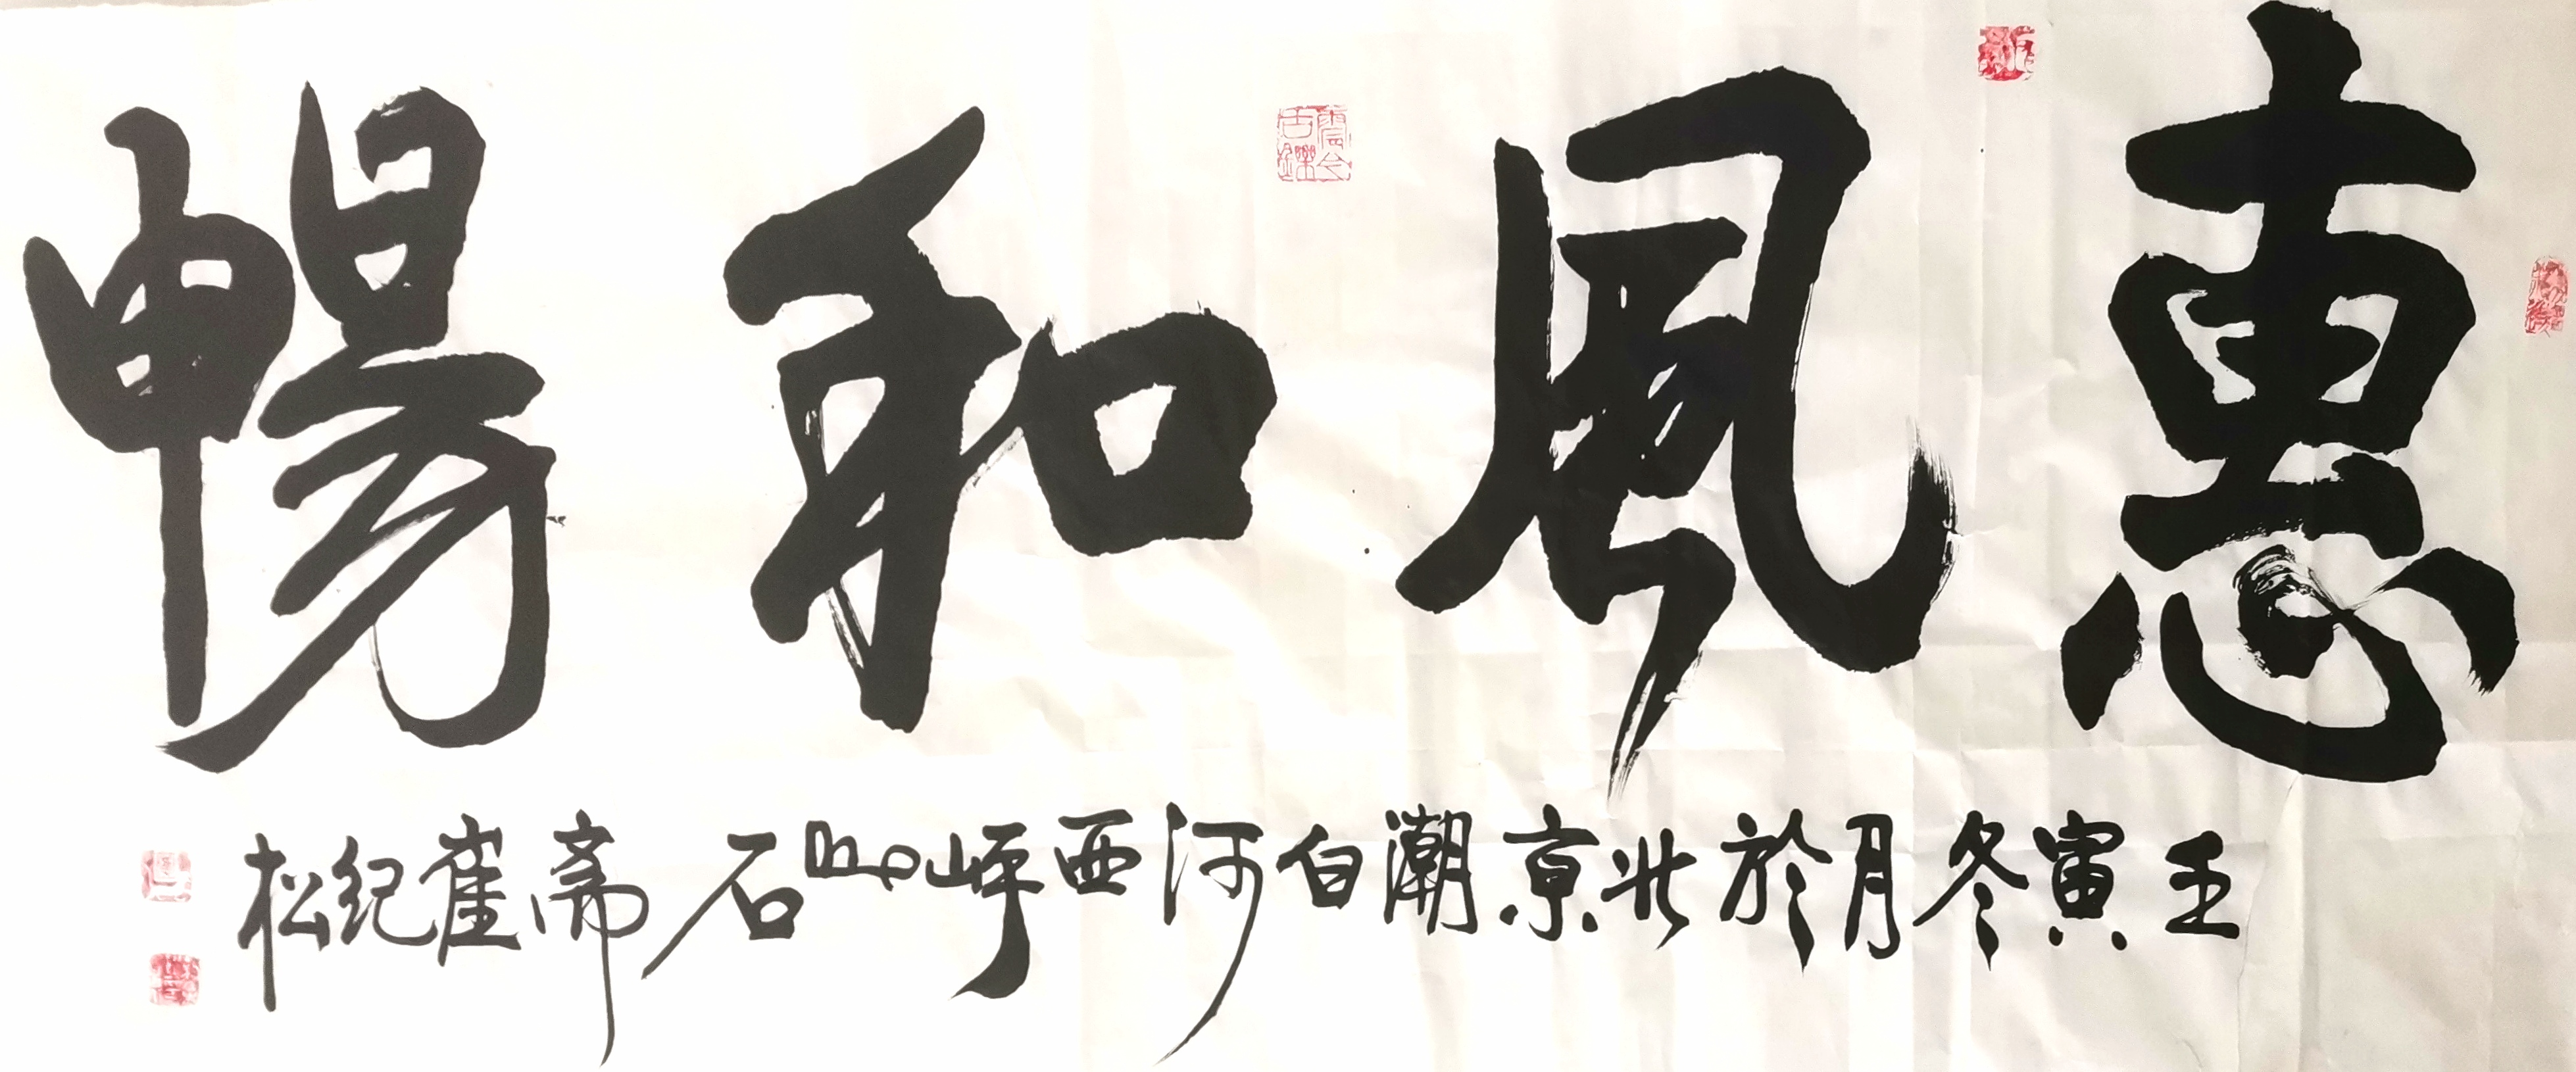 惠風和暢
壬寅冬月於北京潮白河西岸山石斋崔紀松